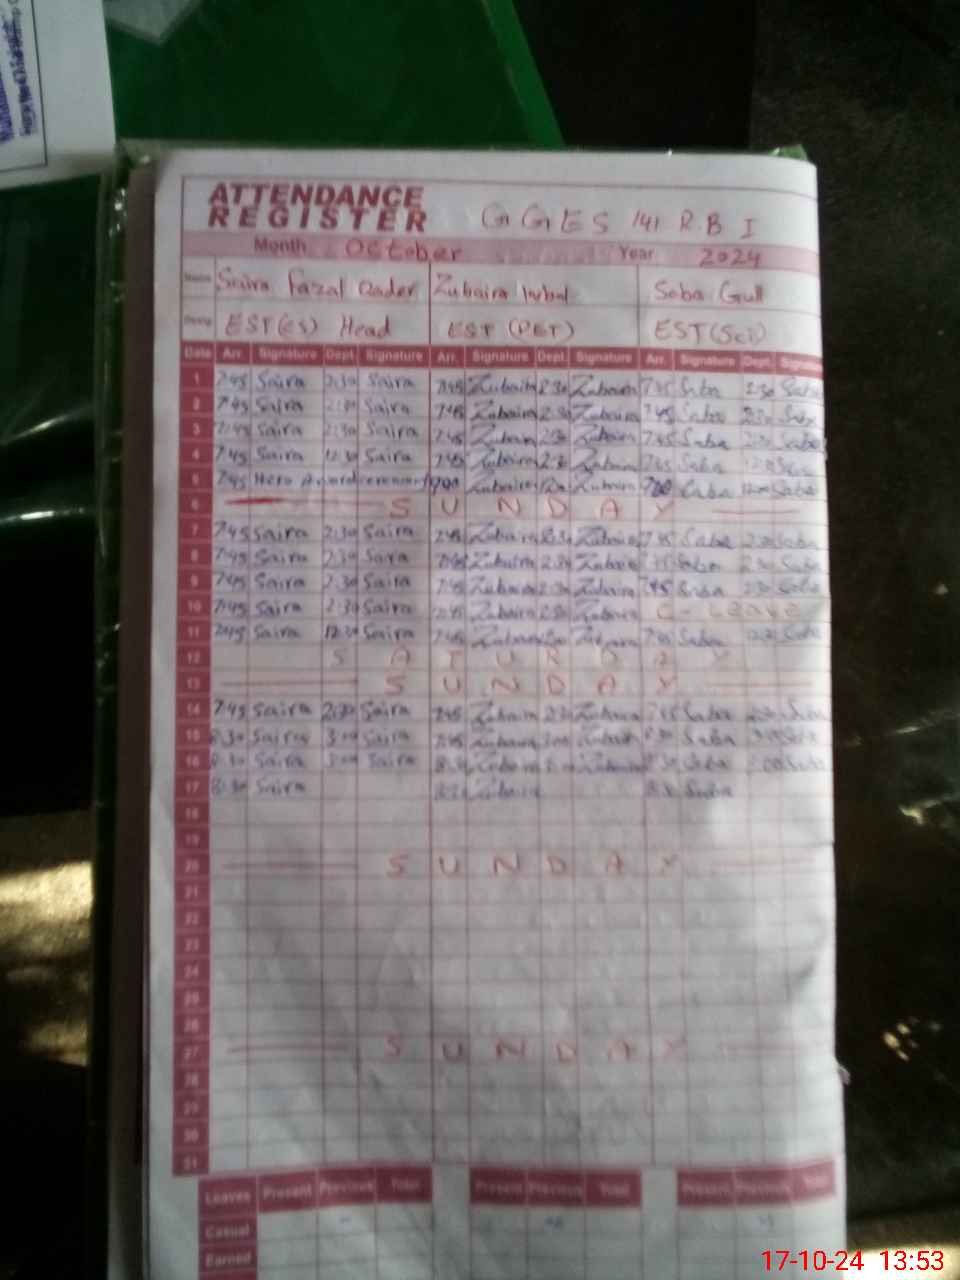 ATTENDANCE
REGISTER GGES 141 R.B I
Month October Year 2024
Name Saira Fazal Qader Zubaira Iqbal Saba Gull
Desig EST(ES) Head EST (PET) EST (Sci)
Date Arr. Signature Dept. Signature Arr. Signature Dept. Signature Arr. Signature Dept. Signature
1 7:45 Saira 2:30 Saira 7:45 Zubaira 2:30 Zubaira 7:45 Saba 2:30 Saba
2 7:45 Saira 2:30 Saira 7:45 Zubaira 2:30 Zubaira 7:45 Saba 2:30 Saba
3 7:45 Saira 2:30 Saira 7:45 Zubaira 2:30 Zubaira 7:45 Saba 2:30 Saba
4 7:45 Saira 12:30 Saira 7:45 Zubaira Zubaira 7:45 Saba Saba
5 7:45 Hero Award ceremony 7:00 Zubaira Zubaira 7:00 Saba 12:00 Saba
6 SUNDAY
7 7:45 Saira 2:30 Saira 7:45 Zubaira 2:30 Zubaira 7:45 Saba 2:30 Saba
8 7:45 Saira 2:30 Saira 7:45 Zubaira 2:30 Zubaira 7:45 Saba 2:30 Saba
9 7:45 Saira 2:30 Saira 7:45 Zubaira 2:30 Zubaira 7:45 Saba 2:30 Saba
10 7:45 Saira 2:30 Saira 7:45 Zubaira 2:30 Zubaira C-Leave
11 7:45 Saira 12:30 Saira 7:45 Zubaira Zubaira 7:45 Saba Saba
12 SATURDAY
13 SUNDAY
14 7:45 Saira 2:30 Saira 7:45 Zubaira 2:30 Zubaira 7:45 Saba 2:30 Saba
15 8:30 Saira 3:00 Saira Zubaira 3:00 Zubaira 8:30 Saba 3:00 Saba
16 8:30 Saira 3:00 Saira 8:30 Zubaira Zubaira 8:30 Saba 3:00 Saba
17 8:30 Saira 8:30 Zubaira 8:30 Saba
18
19
20 SUNDAY
21
22
23
24
25
26
27 SUNDAY
28
29
30
31
Leaves Present Previous Total Present Previous Total Present Previous Total
Casual
Earned
17-10-24 13:53